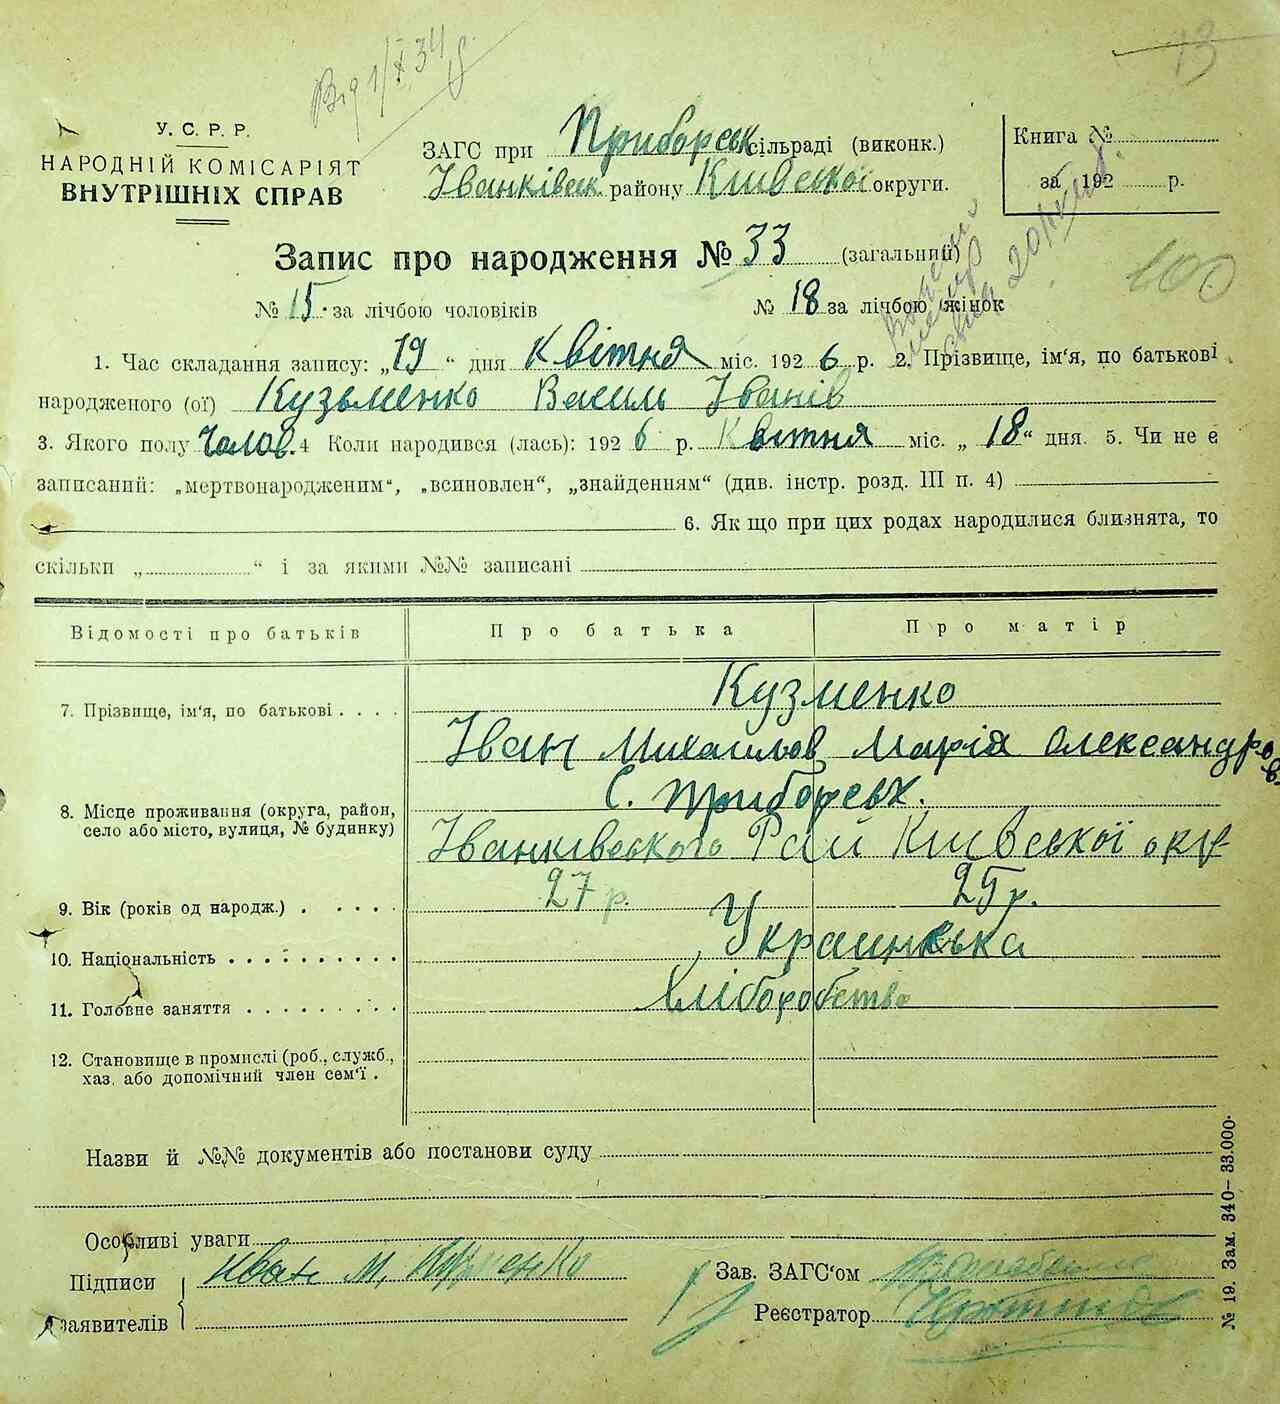 Від 1/X 34
13
У. С. Р. Р.
НАРОДНІЙ КОМІСАРІЯТ
ВНУТРІШНІХ СПРАВ
ЗАГС при Приборськ сільраді (виконк.)
Іванківськ. району Київської округи.
Книга №
за 192 р.
Запис про народження № 33 (загальний)
100
№ 15 за лічбою чоловіків № 18 за лічбою жінок
1. Час складання запису: „19“ дня Квітня міс. 1926 р. 2. Прізвище, ім'я, по батькові
народженого (ої) Кузьменко Василь Іванів
3. Якого полу Чолов. 4 Коли народився (лась): 1926 р. Квітня міс. „18“ дня. 5. Чи не є
записаний: „мертвонародженим“, „всиновлен“, „знайденням“ (див. інстр. розд. III п. 4)
6. Як що при цих родах народилися близнята, то
скільки „ “ і за якими №№ записані
Відомості про батьків Про батька Про матір
7. Прізвище, ім'я, по батькові . . . . Кузменко
Іван Михайлов Марія Олександров.
8. Місце проживання (округа, район,
село або місто, вулиця, № будинку)
С. Приборськ.
Іванківського Рай Київської окр
9. Вік (років од народж.) . . . . . 27 р. 25 р.
10. Національність . . . . . . . . . . Украинська
11. Головне заняття . . . . . . . . . Хліборобство
12. Становище в промислі (роб., служб.,
хаз. або допомічний член сем'ї .
Назви й №№ документів або постанови суду
Особливі уваги
Підписи Иван М. Кузменко
заявителів
Зав. ЗАГС'ом
Реєстратор
№ 19. Зам. 340— 33.000.